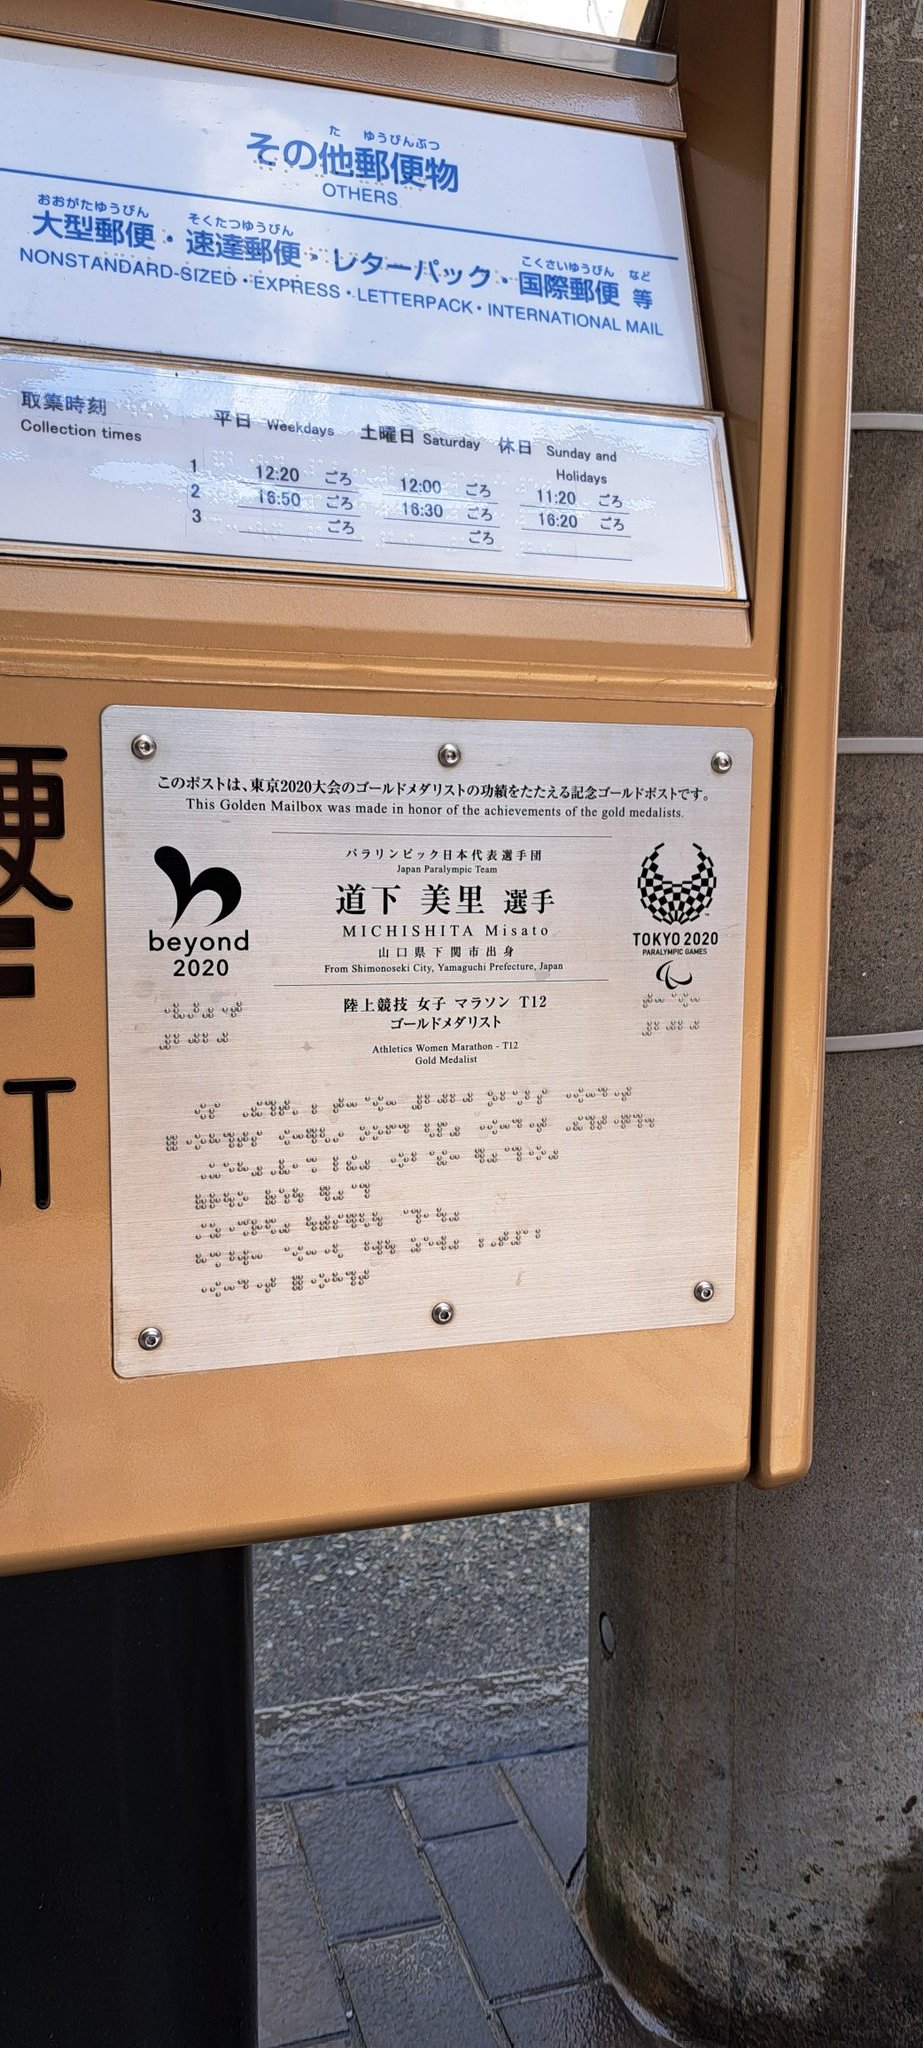 た ゆうびんぶつ
その他郵便物
OTHERS
おおがたゆうびん そくたつゆうびん こくさいゆうびん など
大型郵便・速達郵便・レターパック・国際郵便 等
NONSTANDARD-SIZED・EXPRESS・LETTERPACK・INTERNATIONAL MAIL
取集時刻 平日 Weekdays 土曜日 Saturday 休日 Sunday and Holidays
Collection times
1 12:20 ごろ 12:00 ごろ 11:20 ごろ
2 16:50 ごろ 16:30 ごろ 16:20 ごろ
3 ごろ ごろ
便
ST
このポストは、東京2020大会のゴールドメダリストの功績をたたえる記念ゴールドポストです。
This Golden Mailbox was made in honor of the achievements of the gold medalists.
beyond
2020
パラリンピック日本代表選手団
Japan Paralympic Team
道下 美里 選手
MICHISHITA Misato
山口県下関市出身
From Shimonoseki City, Yamaguchi Prefecture, Japan
TOKYO 2020
PARALYMPIC GAMES
陸上競技 女子 マラソン T12
ゴールドメダリスト
Athletics Women Marathon - T12
Gold Medalist